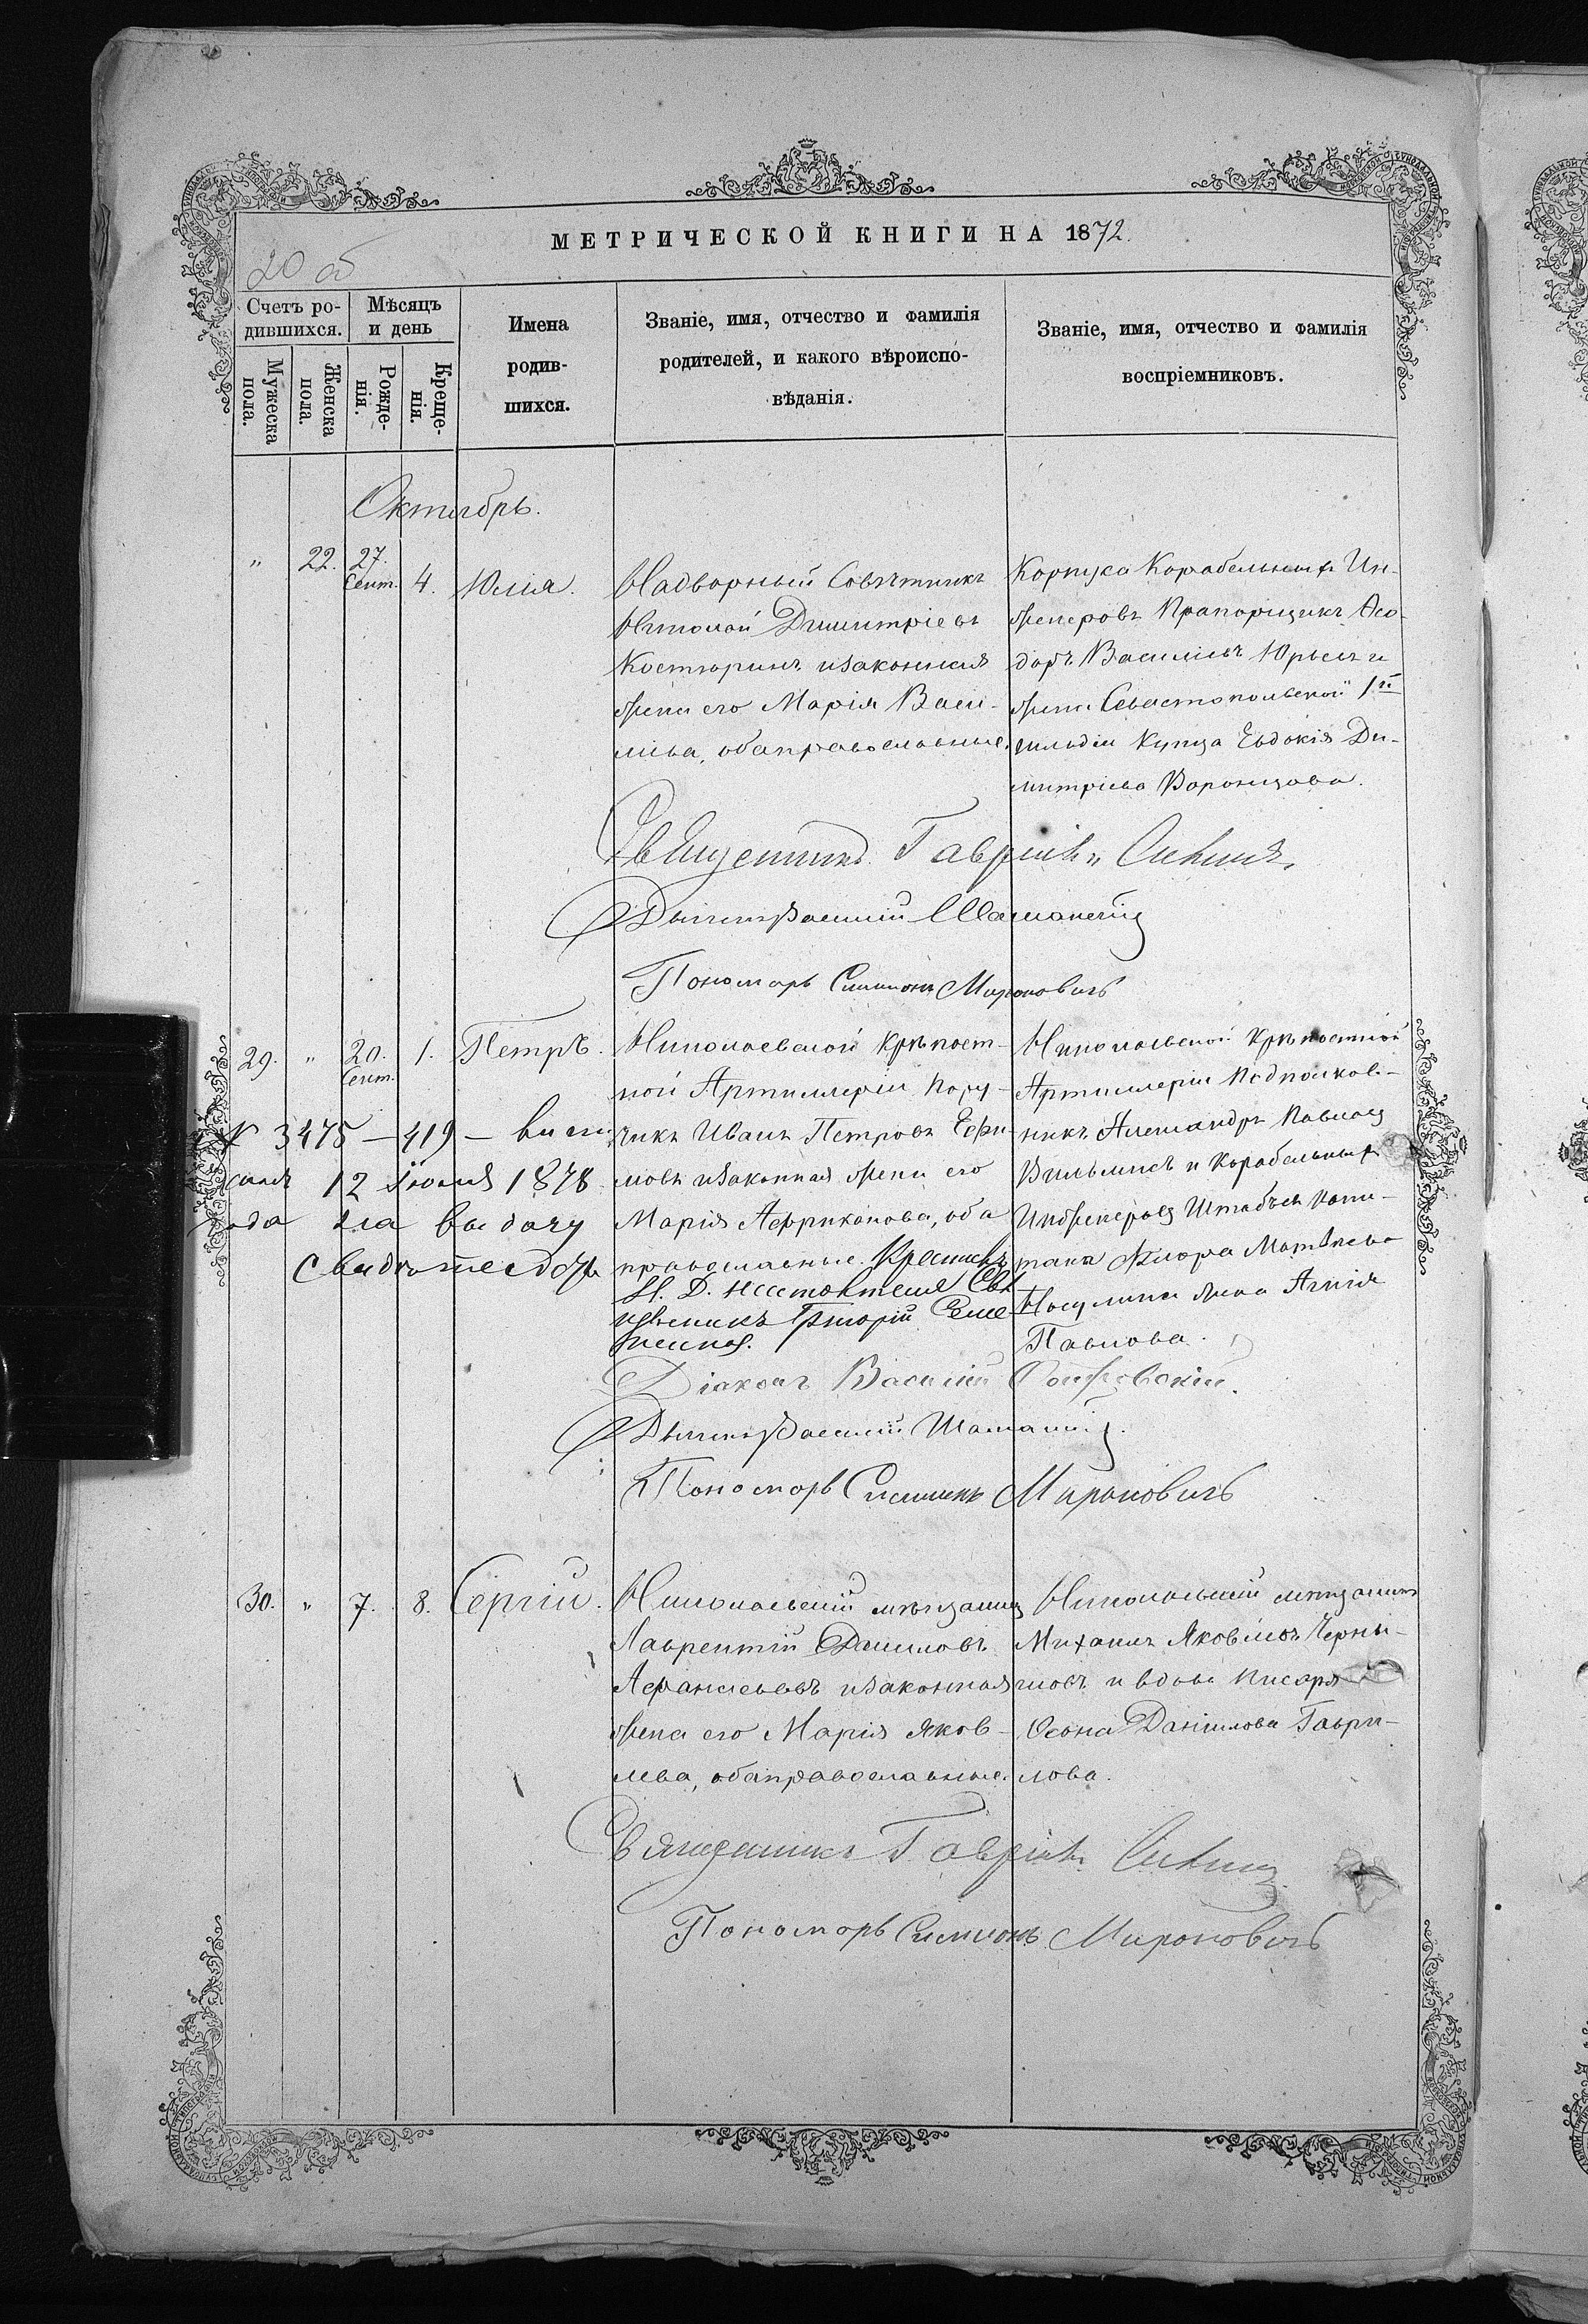 МЕТРИЧЕСКОЙ КНИГИ НА 1872.
20 об
Счетъ ро-
дившихся.
Мѣсяцъ
и день
Мужеска
пола.
Женска
пола.
Рожде-
нія.
Креще-
нія.
Имена
родив-
шихся.
Званіе, имя, отчество и фамилія
родителей, и какого вѣроиспо-
вѣданія.
Званіе, имя, отчество и фамилія
воспріемниковъ.
Октябрь.
" 22. 27. Сент. 4. Юлія.
Надворный Совѣтникъ
Николай Димитріевъ
Костюринъ и законная
жена его Марія Васи-
льева, оба православные.
Корпуса Корабельныхъ Ин-
женеровъ Прапорщикъ Ѳео-
доръ Васильевъ Юрьевъ и
жена Севастопольской 1й
гильдіи Купца Евдокія Ди-
митріева Воронцова.
Священникъ Гавріилъ
Дьячекъ Василій
Пономарь Симеонъ Мироновичъ
29. " 20. Сент. 1. Петръ.
Николаевской Крѣпост-
ной Артиллеріи Пору-
чикъ Иванъ Петровъ Ефи-
мовъ и законная жена его
Марія Африканова, оба
православные. Крестилъ
И. Д. Настоятеля Свя
щенникъ Григорій
Николаевской Крѣпостной
Артиллеріи Подполков-
никъ Александръ Павловъ
и Корабельныхъ
Инженеровъ Штабсъ Капи-
тана Матвѣева
жена Агнія
Павлова.
№ 3475 — 419 —
12 Іюля 1878
года на выдачу
свидѣтельства
Діаконъ Василій
Дьячекъ Василій
Пономарь Симеонъ Мироновичъ
30. " 7. 8. Сергій.
Николаевскій мѣщанинъ
Лаврентій Даниловъ
Афанасьевъ и законная
жена его Марія Яков-
лева, оба православные.
Николаевскій мѣщанинъ
Михаилъ Яковлевъ Черны-
шовъ и вдова писаря
Данилова Гаври-
лова.
Священникъ Гавріилъ
Пономарь Симеонъ Мироновичъ